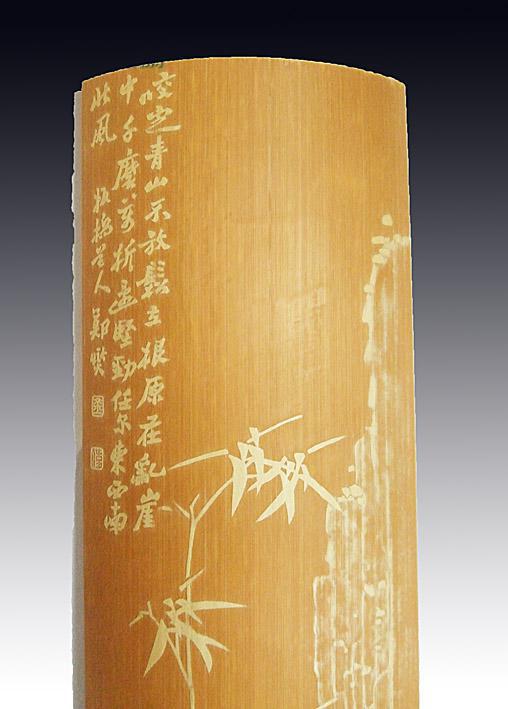 咬定青山不放鬆立根原在亂崖
中千磨萬折還堅勁任尔東西南
北風 板橋道人鄭燮